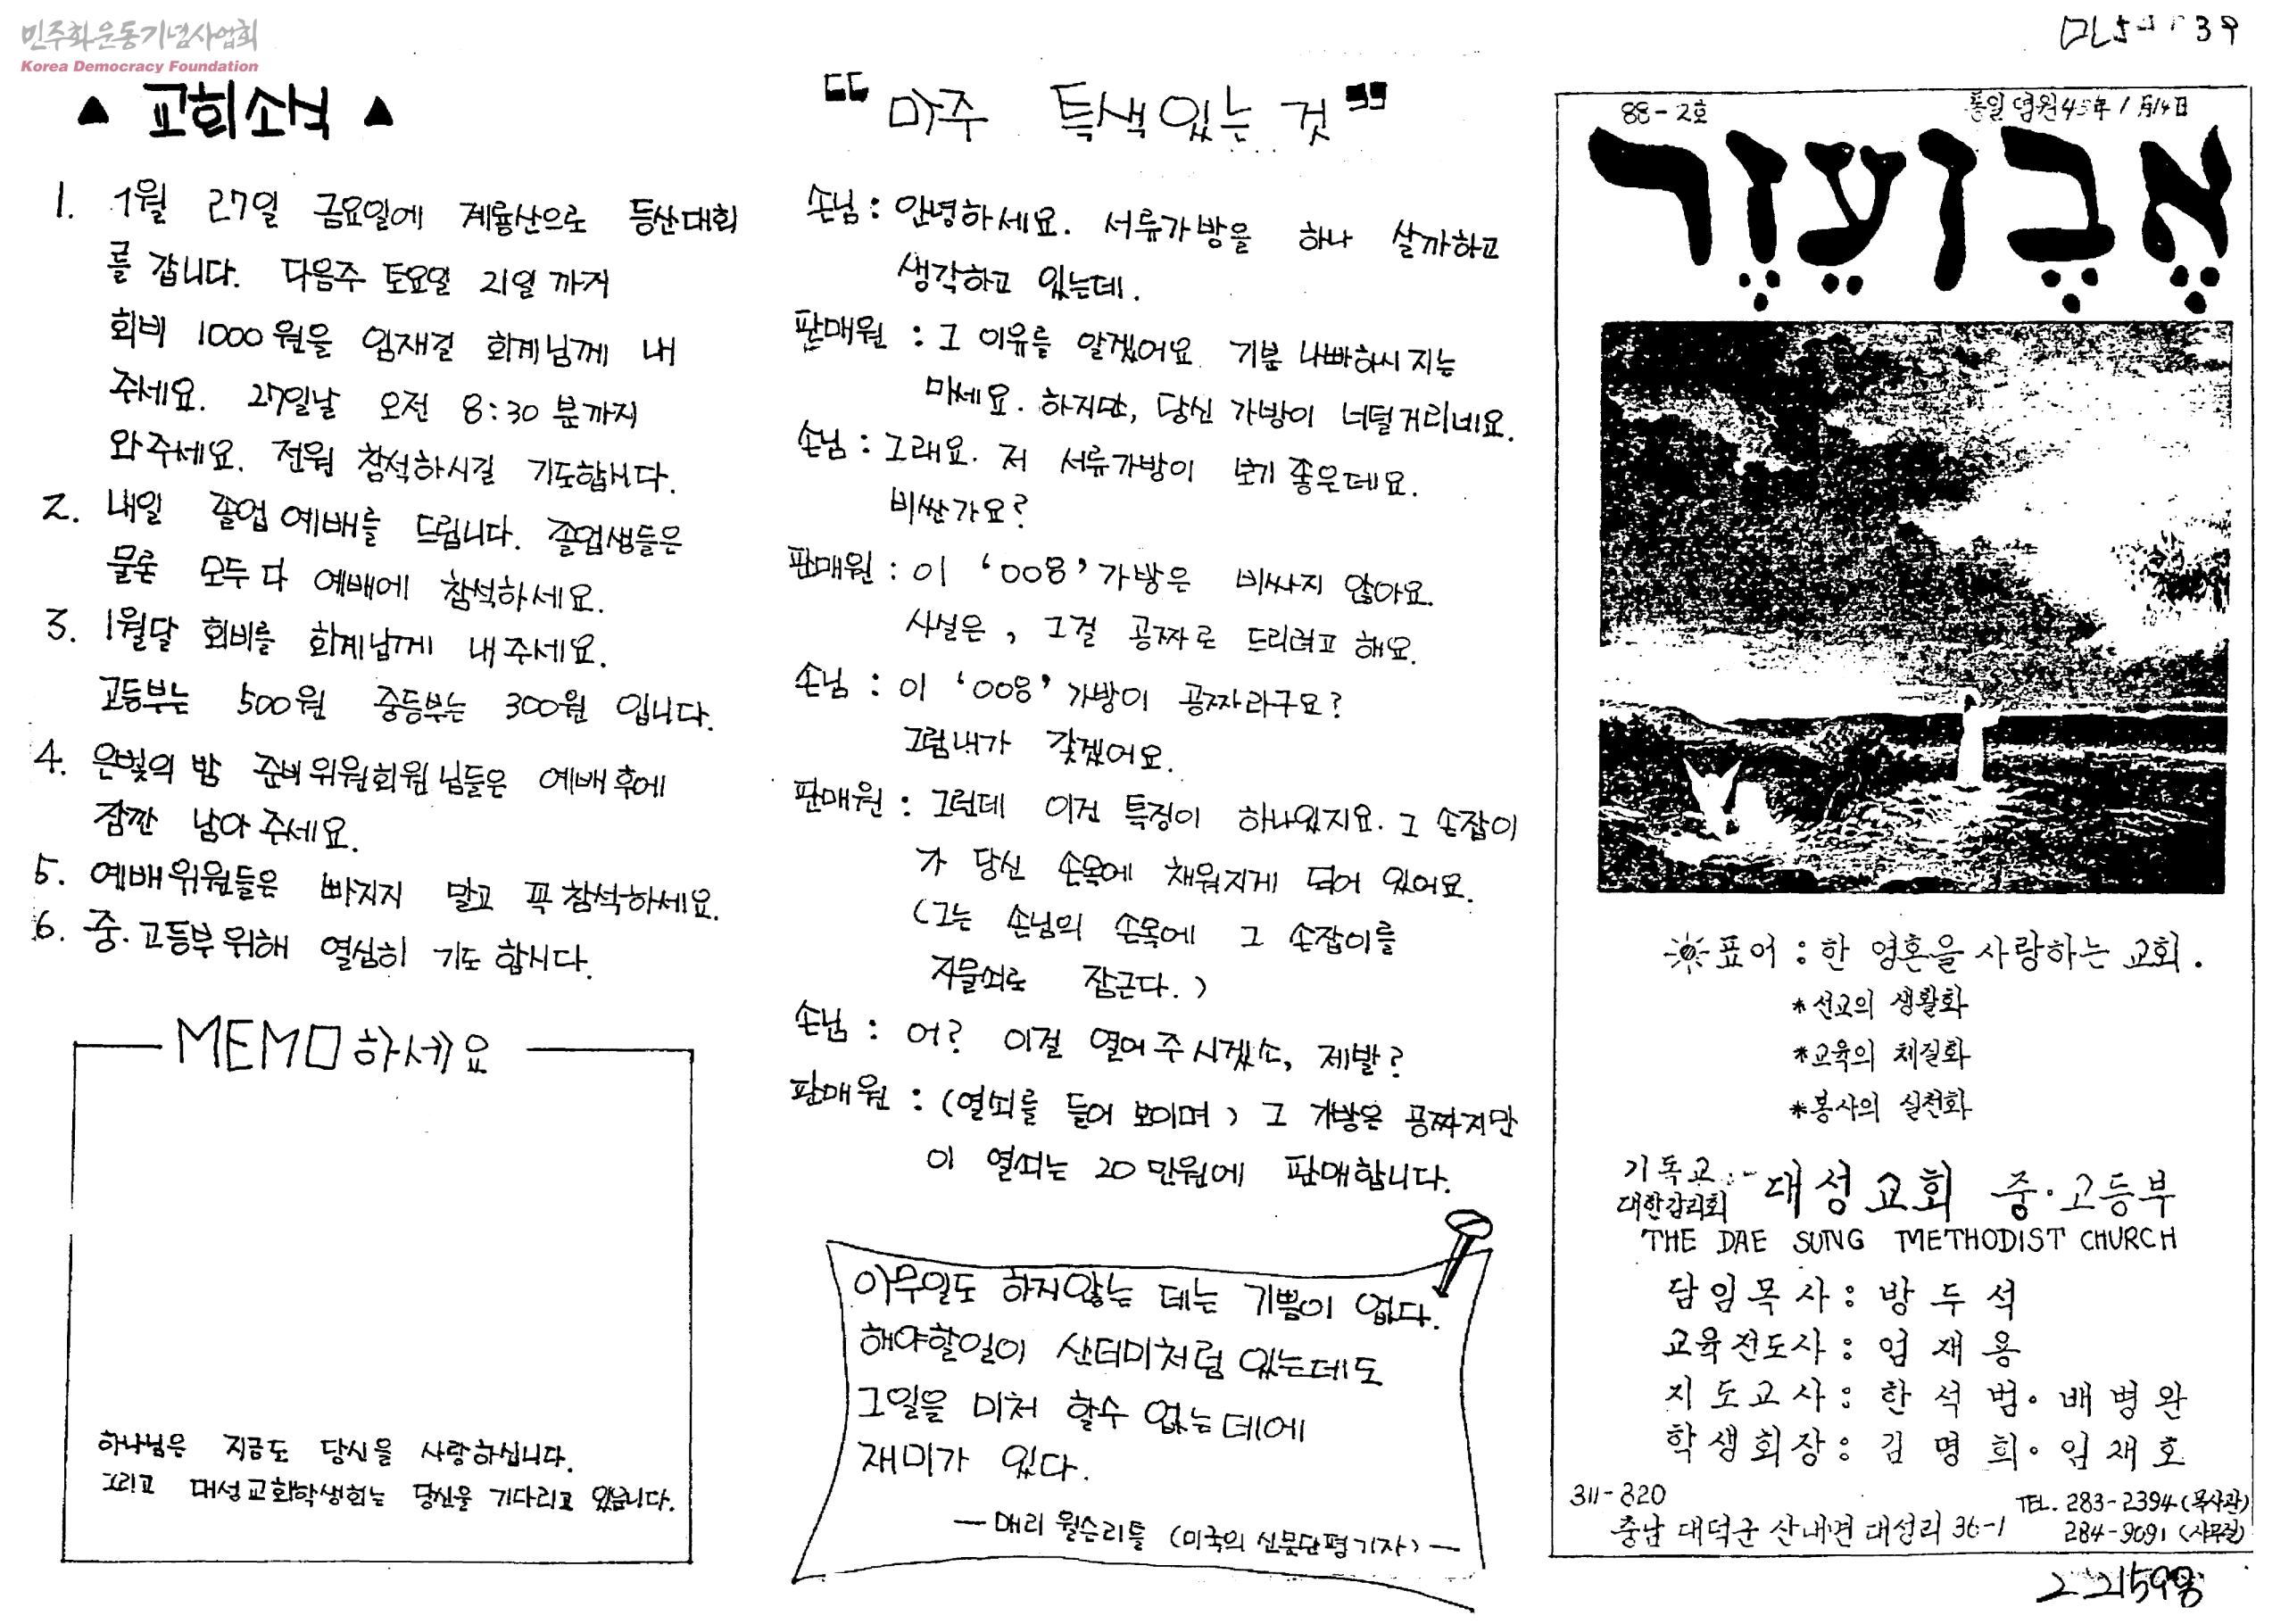 민주화운동기념사업회
Korea Democracy Foundation
▲ 교회소식 ▲
1. 1월 27일 금요일에 계룡산으로 등산대회
를 갑니다. 다음주 토요일 21일 까지
회비 1000원을 임재걸 회계님께 내
주세요. 27일날 오전 8:30분까지
와주세요. 전원 참석하시길 기도합시다.
2. 내일 졸업예배를 드립니다. 졸업생들은
물론 모두 다 예배에 참석하세요.
3. 1월달 회비를 회계님께 내주세요.
고등부는 500원 중등부는 300원 입니다.
4. 은빛의 밤 준비위원회원님들은 예배후에
잠깐 남아 주세요.
5. 예배위원들은 빠지지 말고 꼭 참석하세요.
6. 중·고등부위해 열심히 기도 합시다.
MEMO하세요
하나님은 지금도 당신을 사랑하십니다.
그리고 대성교회학생회는 당신을 기다리고 있습니다.
"아주 특색있는 것"
손님 : 안녕하세요. 서류가방을 하나 살까하고
생각하고 있는데.
판매원 : 그 이유를 알겠어요 기분 나빠하시지는
마세요. 하지만, 당신 가방이 너덜거리네요.
손님 : 그래요. 저 서류가방이 보기 좋은데요.
비싼가요?
판매원 : 이 '008'가방은 비싸지 않아요.
사실은, 그걸 공짜로 드리려고 해요.
손님 : 이 '008'가방이 공짜라구요?
그럼내가 갖겠어요.
판매원 : 그런데 이건 특징이 하나있지요. 그 손잡이
가 당신 손목에 채워지게 되어 있어요.
(그는 손님의 손목에 그 손잡이를
자물쇠로 잠근다.)
손님 : 어? 이걸 열어주시겠소, 제발?
판매원 : (열쇠를 들어 보이며) 그 가방은 공짜지만
이 열쇠는 20만원에 판매합니다.
아무일도 하지않는 데는 기쁨이 없다.
해야할일이 산더미처럼 있는데도
그일을 미처 할수 없는데에
재미가 있다.
— 매리 윌슨리틀 (미국의 신문단평기자) —
88-2호 통일염원45年 1月14日
אֶבֶן עֵזֶר
표어 : 한 영혼을 사랑하는 교회.
*선교의 생활화
*교육의 체질화
*봉사의 실천화
기독교
대한감리회 대성교회 중·고등부
THE DAE SUNG METHODIST CHURCH
담임목사 : 방 두 석
교육전도사 : 엄 재 용
지도교사 : 한 석 범 · 배 병 완
학생회장 : 김 명 희 · 임 재 호
311-820
TEL. 283-2394 (목사관)
충남 대덕군 산내면 대성리 36-1
284-9091 (사무실)